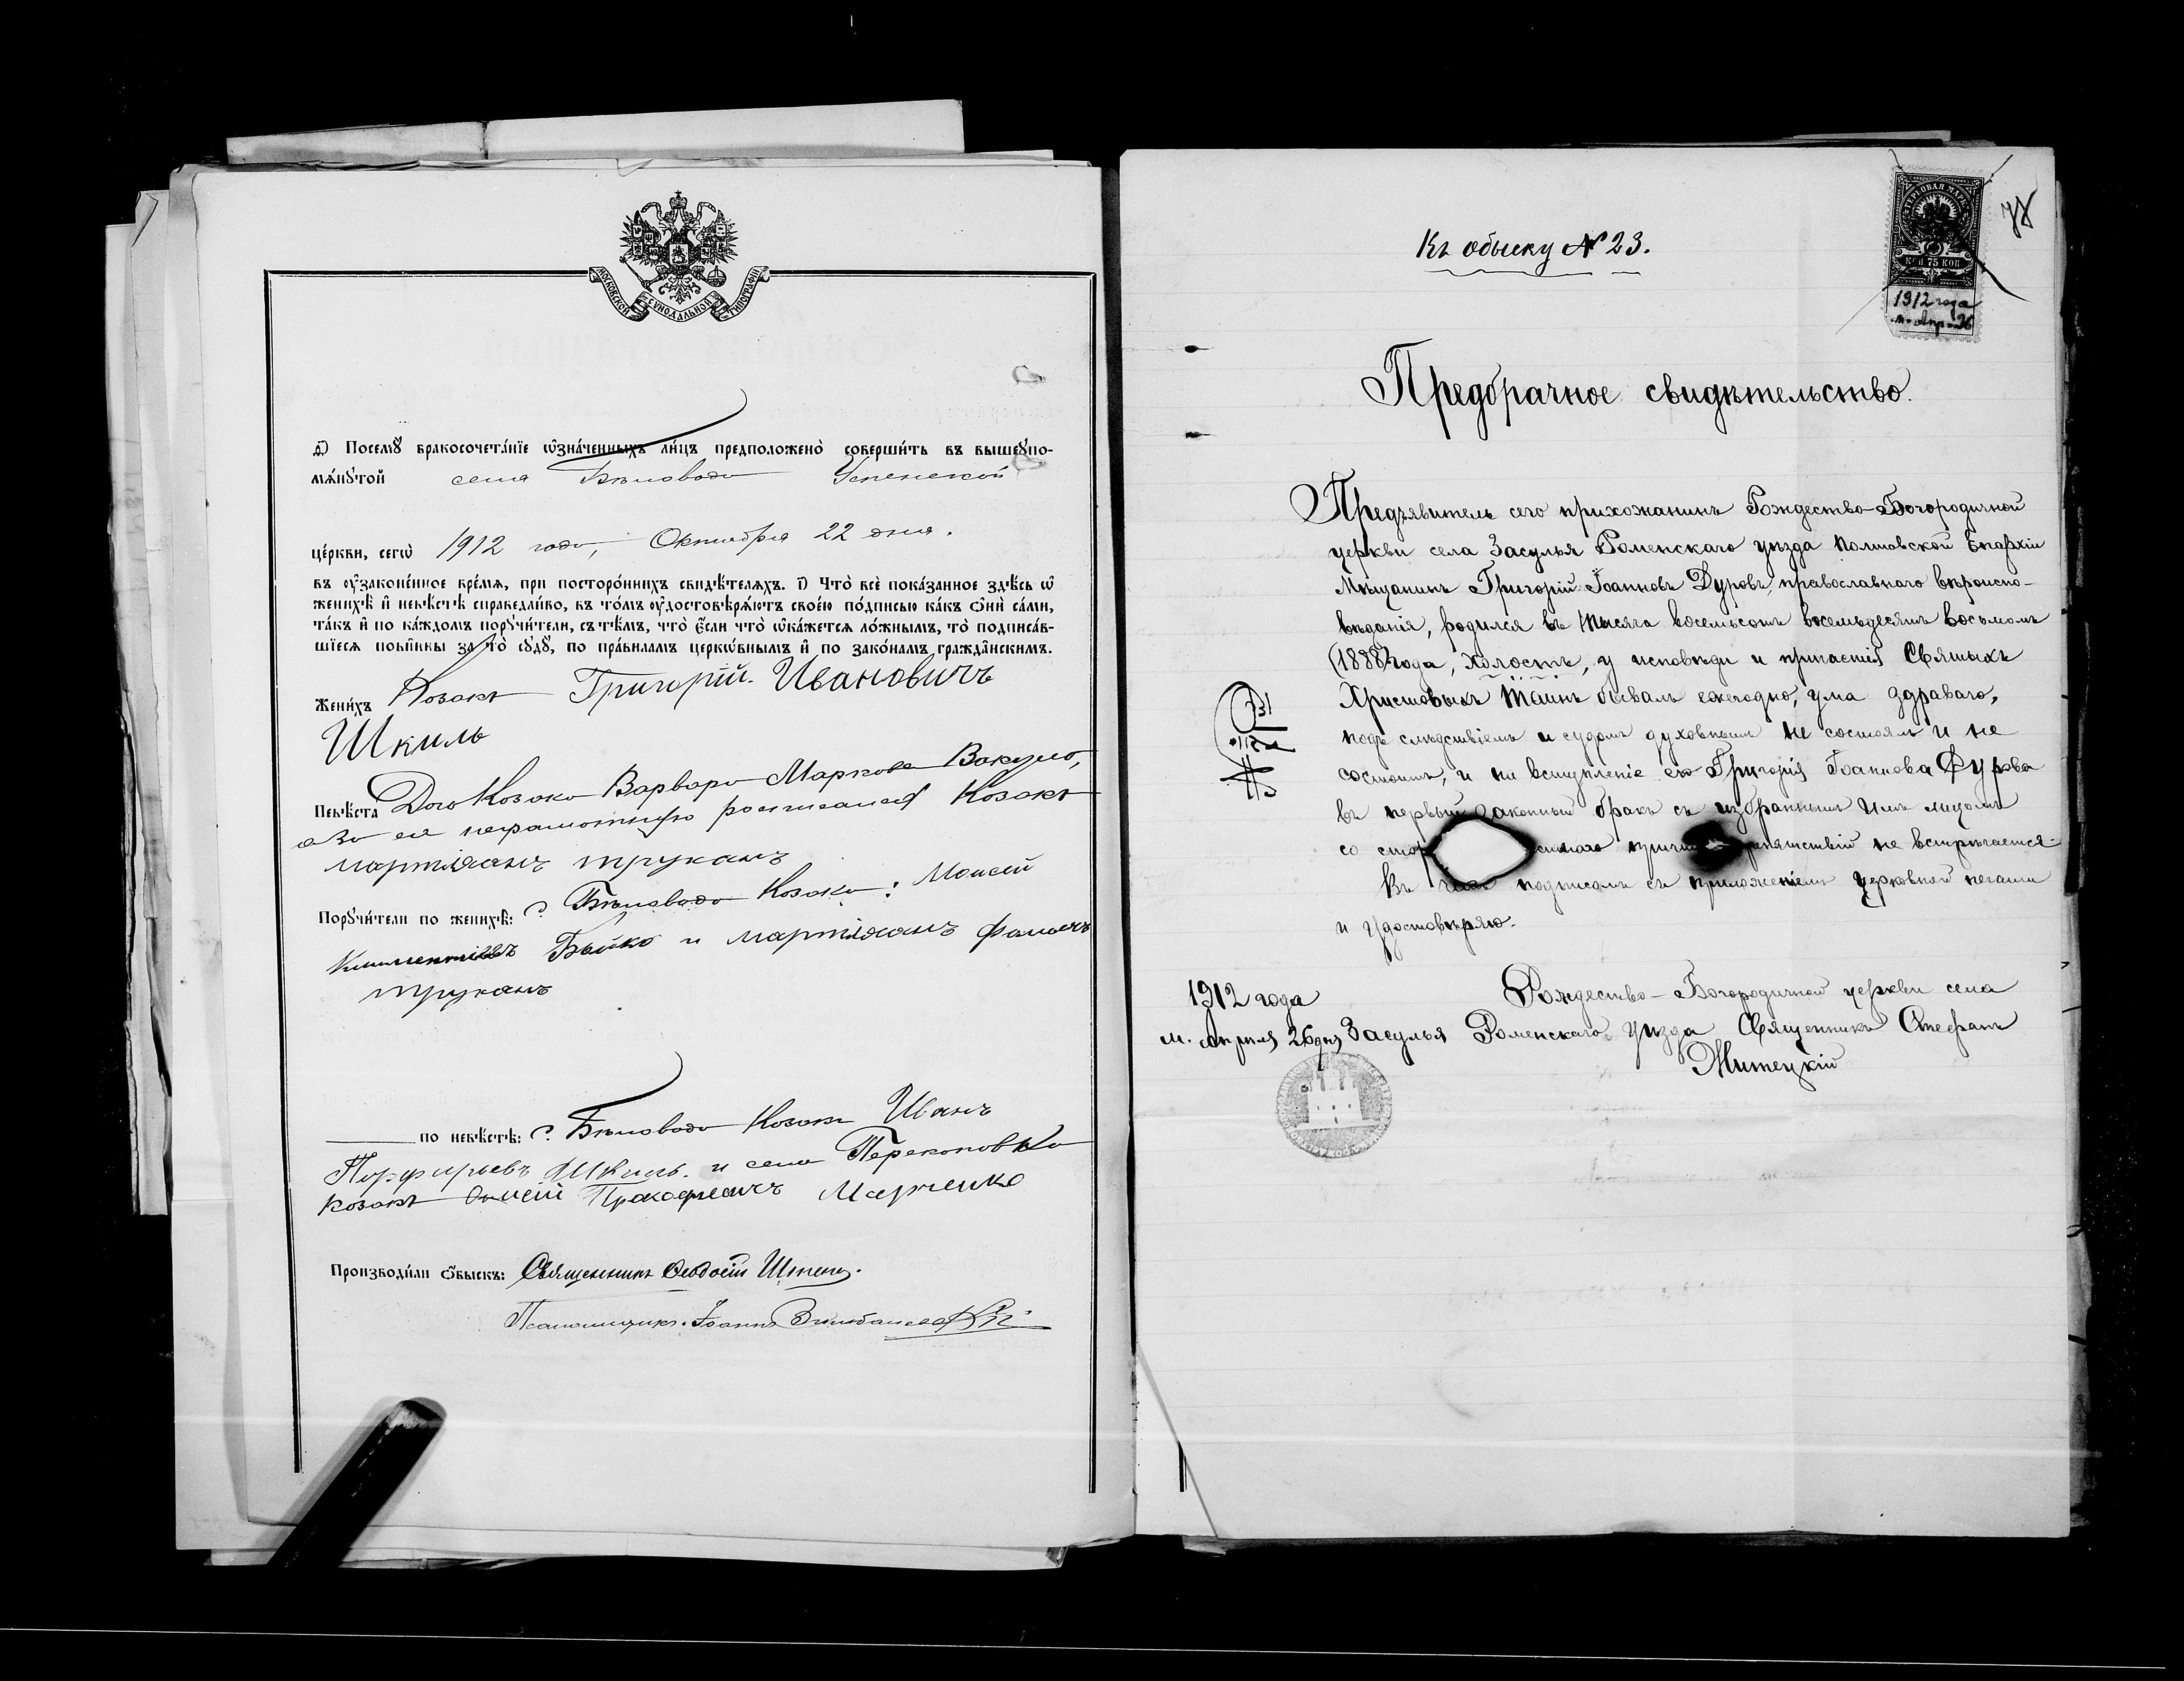 МОСКОВСКОЙ СѴНОДАЛЬНОЙ ТИПОГРАФІИ
Посемꙋ̀ бракосочета́нїе ѡ҆зна́ченныхъ ли́цъ предположено̀ соверши́ть въ вышеꙋпо-
мѧ́нꙋтой села Бѣловодъ Успенской
це́ркви, сегѡ̀ 1912 года, Октября 22 дня.
въ ᲂу҆зако́ненное вре́мѧ, при посторо́ннихъ свидѣ́телѧхъ. і҃) Что̀ всѐ пока́занное здѣ́сь ѡ҆
женихѣ̀ и҆ невѣ́стѣ справедли́во, въ то́мъ ᲂу҆достовѣрѧ́ютъ свое́ю по́дписью ка́къ ѻ҆нѝ са́ми,
та́къ и҆ по ка́ждомъ порꙋчи́тели, съ тѣ́мъ, что̀ є҆́сли что̀ ѡ҆ка́жетсѧ ло́жнымъ, то̀ подписа́в-
шїесѧ пови́нны за то̀ сꙋдꙋ̀, по пра́виламъ церко́внымъ и҆ по зако́намъ гражда́нскимъ.
Жени́хъ Козакъ Григорій. Ивановичъ
Шкиль
Невѣ́ста Козака Варвара Маркова Вакула,
а за ея неграмотную росписался Козакъ
мартіянъ труханъ
Порꙋчи́тели по женихѣ̀: с. Бѣловодъ Козаки: Моисей
Бойко и мартіянъ
труханъ
по невѣ́стѣ: с. Бѣловодъ Козакъ Иванъ
Порфирьевъ Шкиль. и села Перекоповки
козакъ Прокофіевичъ Марченко
Производи́ли ѻ҆́быскъ: Священникъ Ѳеодосій
Псаломщикъ Іоаннъ
Къ обыску № 23.
78
ГЕРБОВАЯ МАРКА
КОП 75 КОП
1912 года
м. апр. 26
Предбрачное свидѣтельство.
Предъявитель сего прихожанинъ Рождество-Богородичной
церкви села Засулья Роменскаго уѣзда Полтавской Епархіи
Мѣщанинъ Григорій Іоанновъ Дуровъ, православнаго вѣроиспо-
вѣданія, родился въ тысяча восемьсотъ восемьдесятъ восьмомъ
(1888) года, холостъ, у исповѣди и причастія Святыхъ
Христовыхъ Таинъ бывалъ ежегодно, ума здраваго,
подъ слѣдствіемъ и судомъ духовнымъ не состоялъ и не
состоитъ, и на вступленіе его Григорія Іоаннова Дурова
въ первый законный бракъ съ избраннымъ имъ лицомъ
со не встрѣчается.
Въ чемъ подписомъ съ приложеніемъ церковной печати
и удостовѣряю.
№ 131
1912 года Рождество-Богородичной церкви села
м. апрѣля 26 дня Засулья Роменскаго уѣзда Священникъ Стефанъ
Житецкій